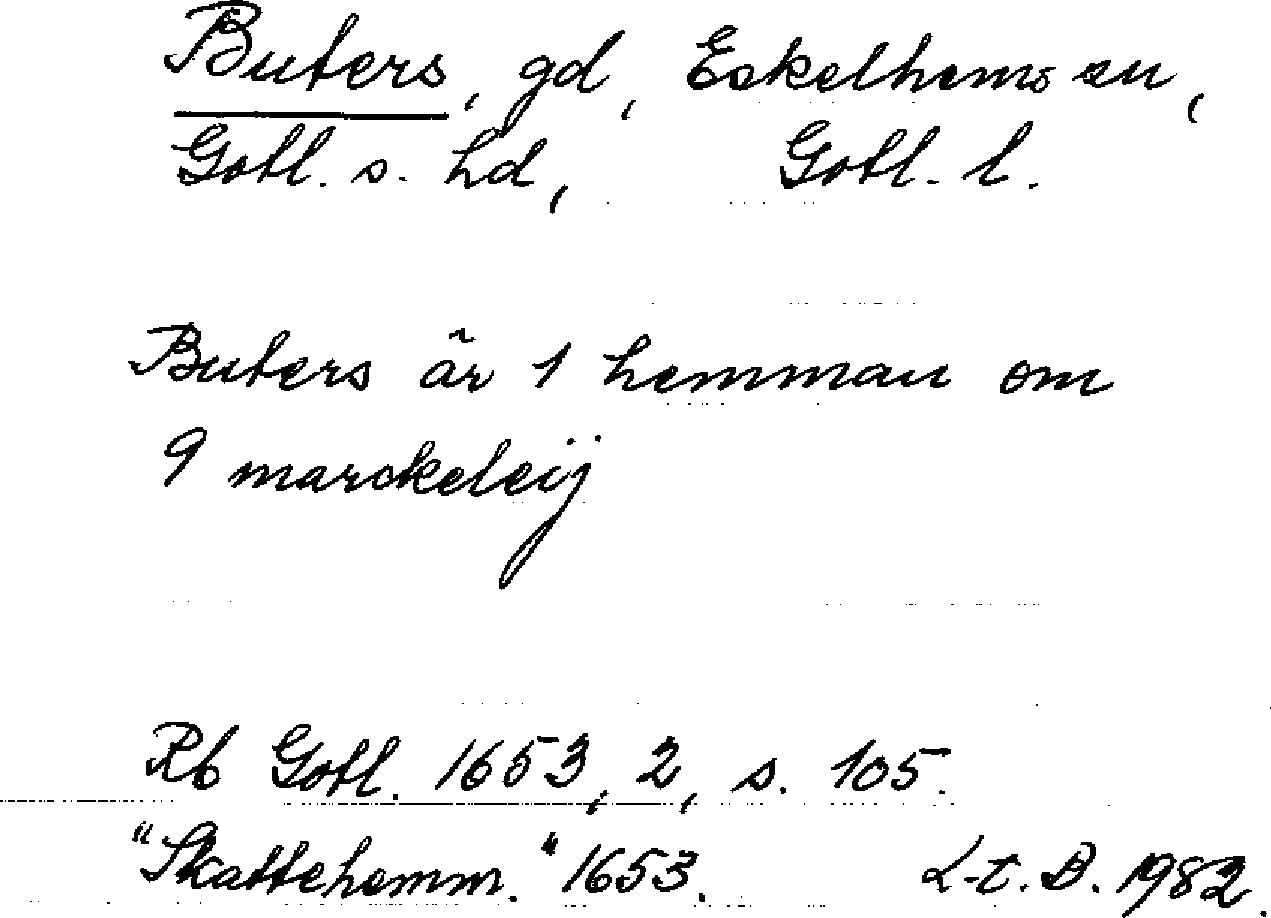 Buters, gd, Eskelhems sn,
Gotl. s. hd, Gotl. l.
Buters är 1 hemman om
9 marckeleij
Rb Gotl. 1653, 2, s. 105.
"Skattehemm." 1653. L-t. B. 1982.